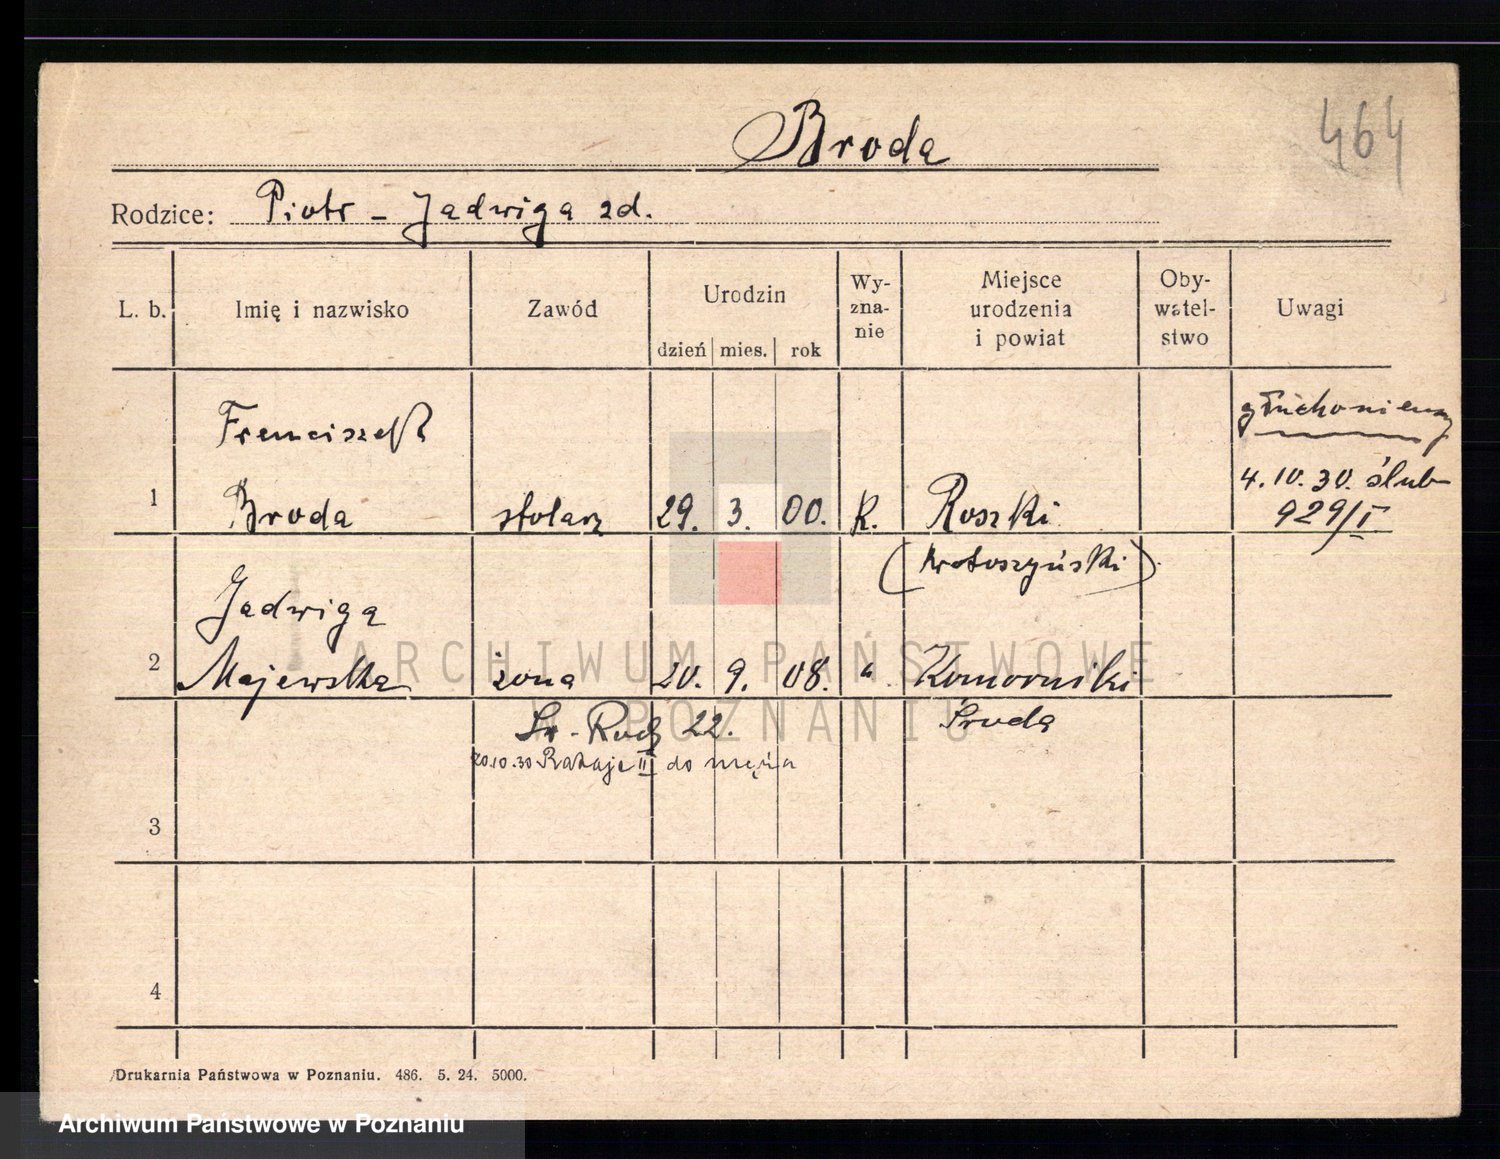 Broda
464
Rodzice: Piotr - Jadwiga zd.
L. b. Imię i nazwisko Zawód Urodzin dzień mies. rok Wy-zna-nie Miejsce urodzenia i powiat Oby-watel-stwo Uwagi
Franciszek głuchoniemy
4.10.30. ślub
1 Broda stolarz 29. 3. 00. k. Roszki 929/I
(Krotoszyński)
Jadwiga
2 Majewska żona 20. 9. 08. " Komorniki
Śr-Rodz 22. Środa
20.10.30 Rataje II do męża
3
4
Drukarnia Państwowa w Poznaniu. 486. 5. 24. 5000.
ARCHIWUM PAŃSTWOWE
W POZNANIU
Archiwum Państwowe w Poznaniu